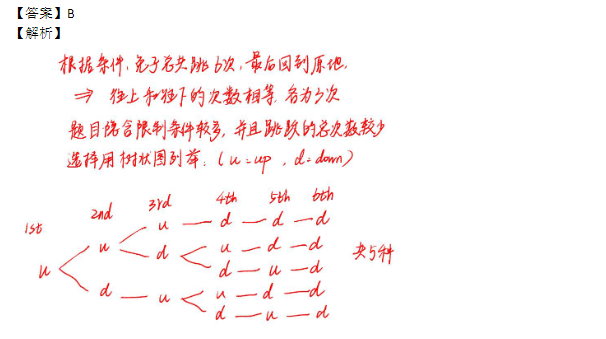 【答案】B
【解析】
根据条件,兔子总共跳6次,最后回到原地.
⇒ 往上和往下的次数相等,各为3次
题目综合限制条件较多,并且跳跃的总次数较少
选择用树状图列举. (u=up , d=down)
1st 2nd 3rd 4th 5th 6th
u — d — d — d
u u — d — d
d d — u — d 共5种
u
d — u u — d — d
d — u — d